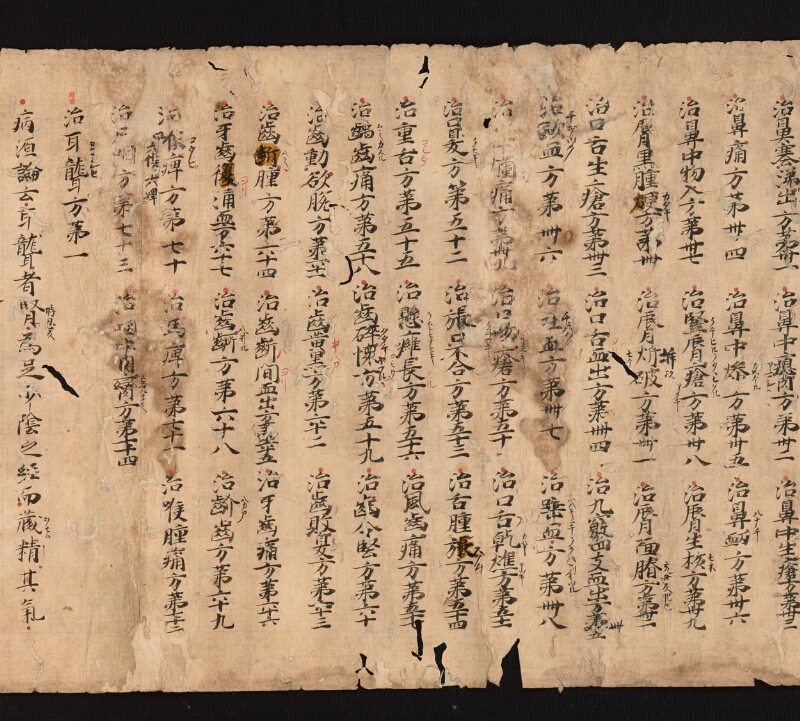 治鼻塞涕出方第卅一 治鼻中瘜肉方第卅二 治鼻中生瘡方第卅三
治鼻痛方第卅四 治鼻中燥方第卅五 治鼻衄方第卅六
治鼻中物入方第卅七 治緊脣瘡方第卅八 治脣生核方第卅九
治脣黒腫方第卌 治脣面方第卌
治口舌生瘡方第卌三 治口舌血出方第卌四 治九竅四支血出方第卌五
治血方第卌六 治吐血方第卌七 治唾血方第卌八
治腫痛方第卌九 治口瘡方第五十 治口舌乾燋方第五十一
治口臭方第五十二 治張口不合方第五十三 治舌腫方第五十四
治重舌方第五十五 治懸癰長方第五十六 治風齒痛方第五十七
治齲齒痛方第五十八 治齒碎壊方第五十九 治齒不堅方第六十
治齒動欲脱方第六十一 治齒黄黒方第六十二 治齒敗臭方第六十三
治齒齗腫方第六十四 治齒齗間血出方第六十五 治牙齒痛方第六十六
治牙齒後涌血方第六十七 治齒齗方第六十八 治齘齒方第六十九
治喉痺方第七十 治馬痺方第七十一 治喉腫痛方第七十二
治咽方第七十三 治咽中肉臠方第七十四
治耳聾方第一
病源論云耳聾者腎為足少陰之經而蔵精其氣